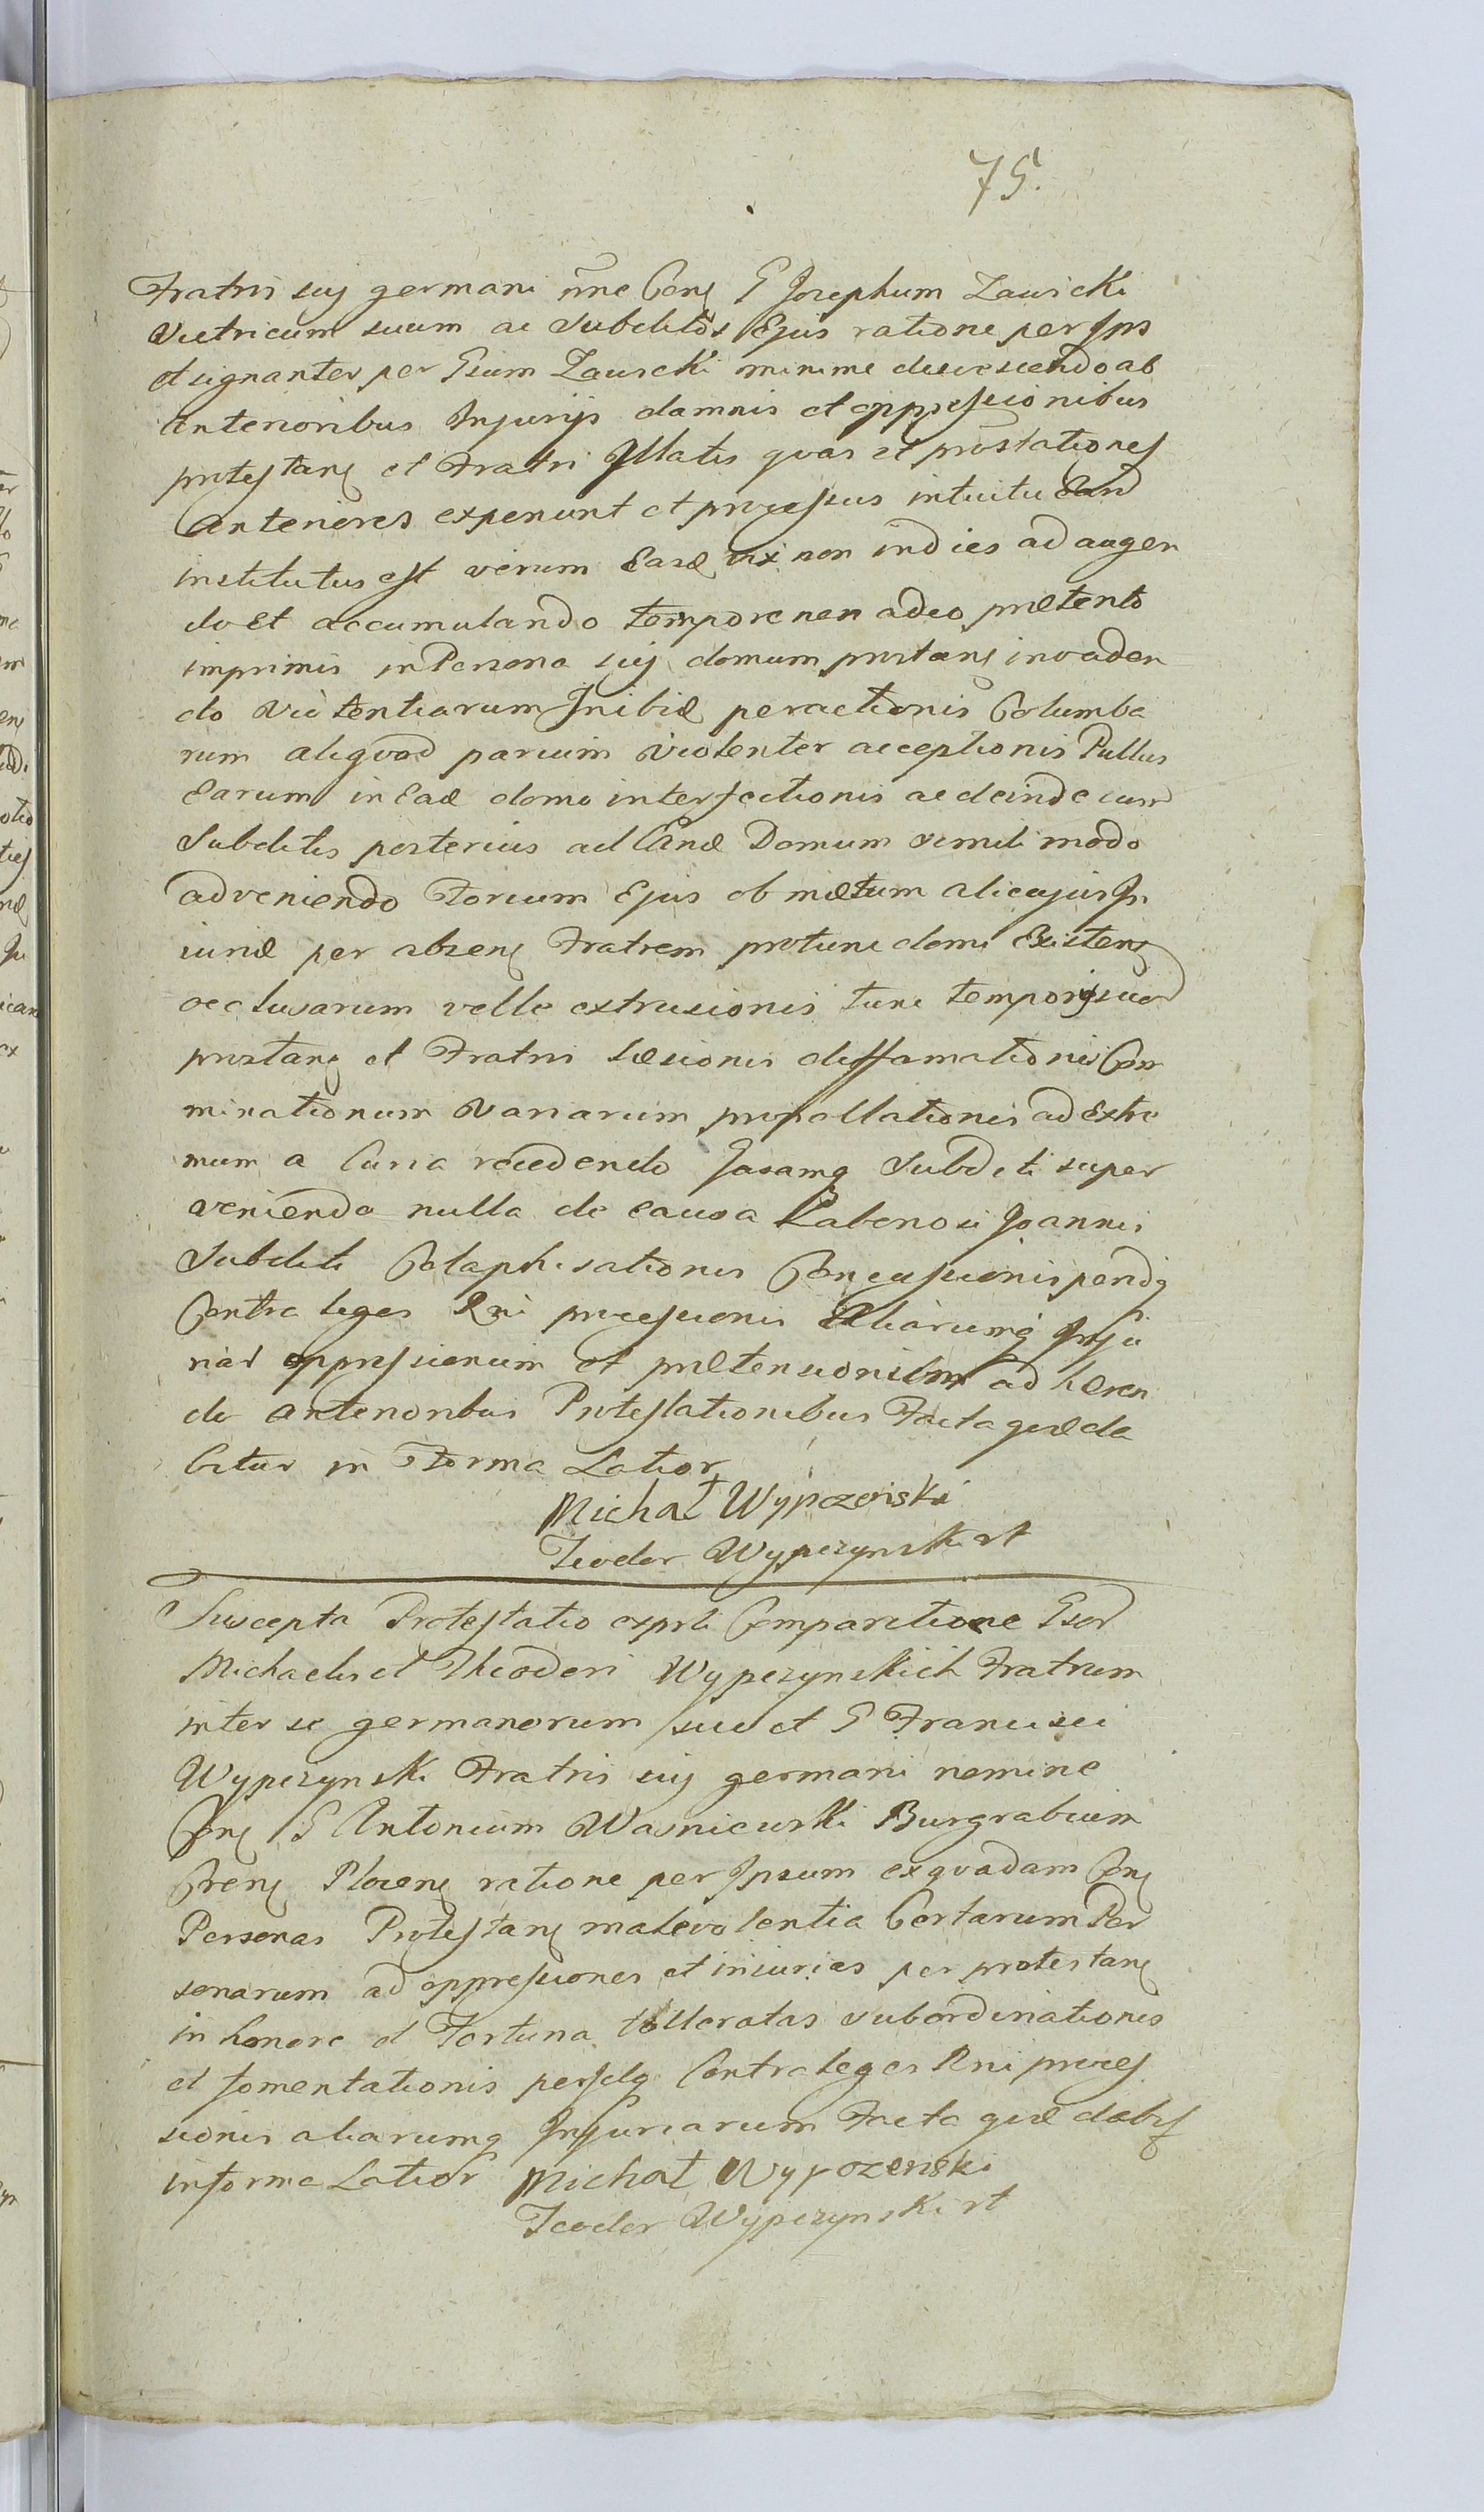 75.
Fratris sui germani nne Cons G Josephum Zawicki
Vietricum suum ac Subditos Ejus ratione per Ips
et signanter per Gsum Zawicki minime desciscendo ab
anterioribus Injurijs damnis et oppressionibus
protestans et Fratri Illatis quas et prostationes
Anteriores exponunt et processus intuitu Eard
institutus est verum Easd vix non indies ad augen
do et accumulando tempore non adeo praetento
imprimis in Persona sui domum protans invaden
do violentiarum Inibid peractionis Columba
rum aliquod parium violenter acceptionis Pullus
Earum in Ead domo interfectionis ac deinde cum
Subditis posterius ad Eand Domum simili modo
adveniendo Forium Ejus ob metum alicujus In
iuriae per absens Fratrem protunc domi Existens
occlusarum velle extrusionis tunc temporis suor
prostans et Fratris laesionis diffamationis Com
minationum Variarum propallationis ad Extre
mum a Curia recedendo Jasamq Subditi super
veniendo nulla de causa Laboriosi Joannis
Subditi Colaphisationis Concussionis pendq
Contra leges Rni processionis Aliarumq Inju
riar oppressionum et praetensionum ad haeren
do anterioribus Protestationibus Facta quae da
bitur in Forma Latior
Michał Wypczeński
Teodor Wypczynski rt
Suscepta Protestatio exprli Comparitione Gsor
Michaelis et Theodori Wypczynskich Fratrum
inter se germanorum suo et G Francisci
Wypczynski Fratris sui germani nomine
Cons G Antonium Wasniewski Burgrabium
Crens Plocens ratione per Ipsum ex quadam Cons
Personas Protestans malevolentia Certarum Per
sonarum ad oppressiones et iniurias per protestans
in honore et Fortuna tolleratas subordinationis
et fomentationis perselq Contra leges Rni proces
sionis aliarumq Injuriarum Facta quae dabit
in forma Latior Michał Wypczenski
Teodor Wypczynski rt